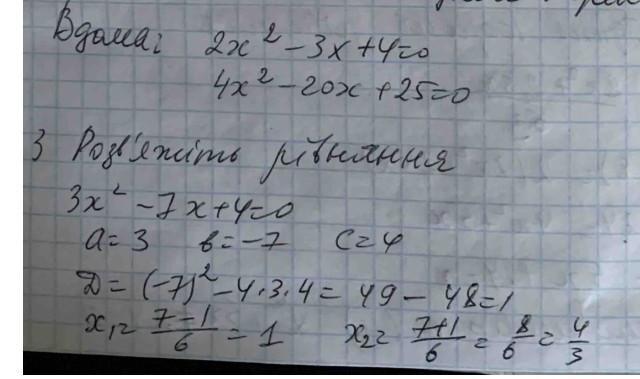 Вдома: 2x² - 3x + 4 = 0
4x² - 20x + 25 = 0
3 Розв'яжіть рівняння
3x² - 7x + 4 = 0
a = 3 b = -7 c = 4
D = (-7)² - 4·3·4 = 49 - 48 = 1
x₁ = (7-1)/6 = 1 x₂ = (7+1)/6 = 8/6 = 4/3